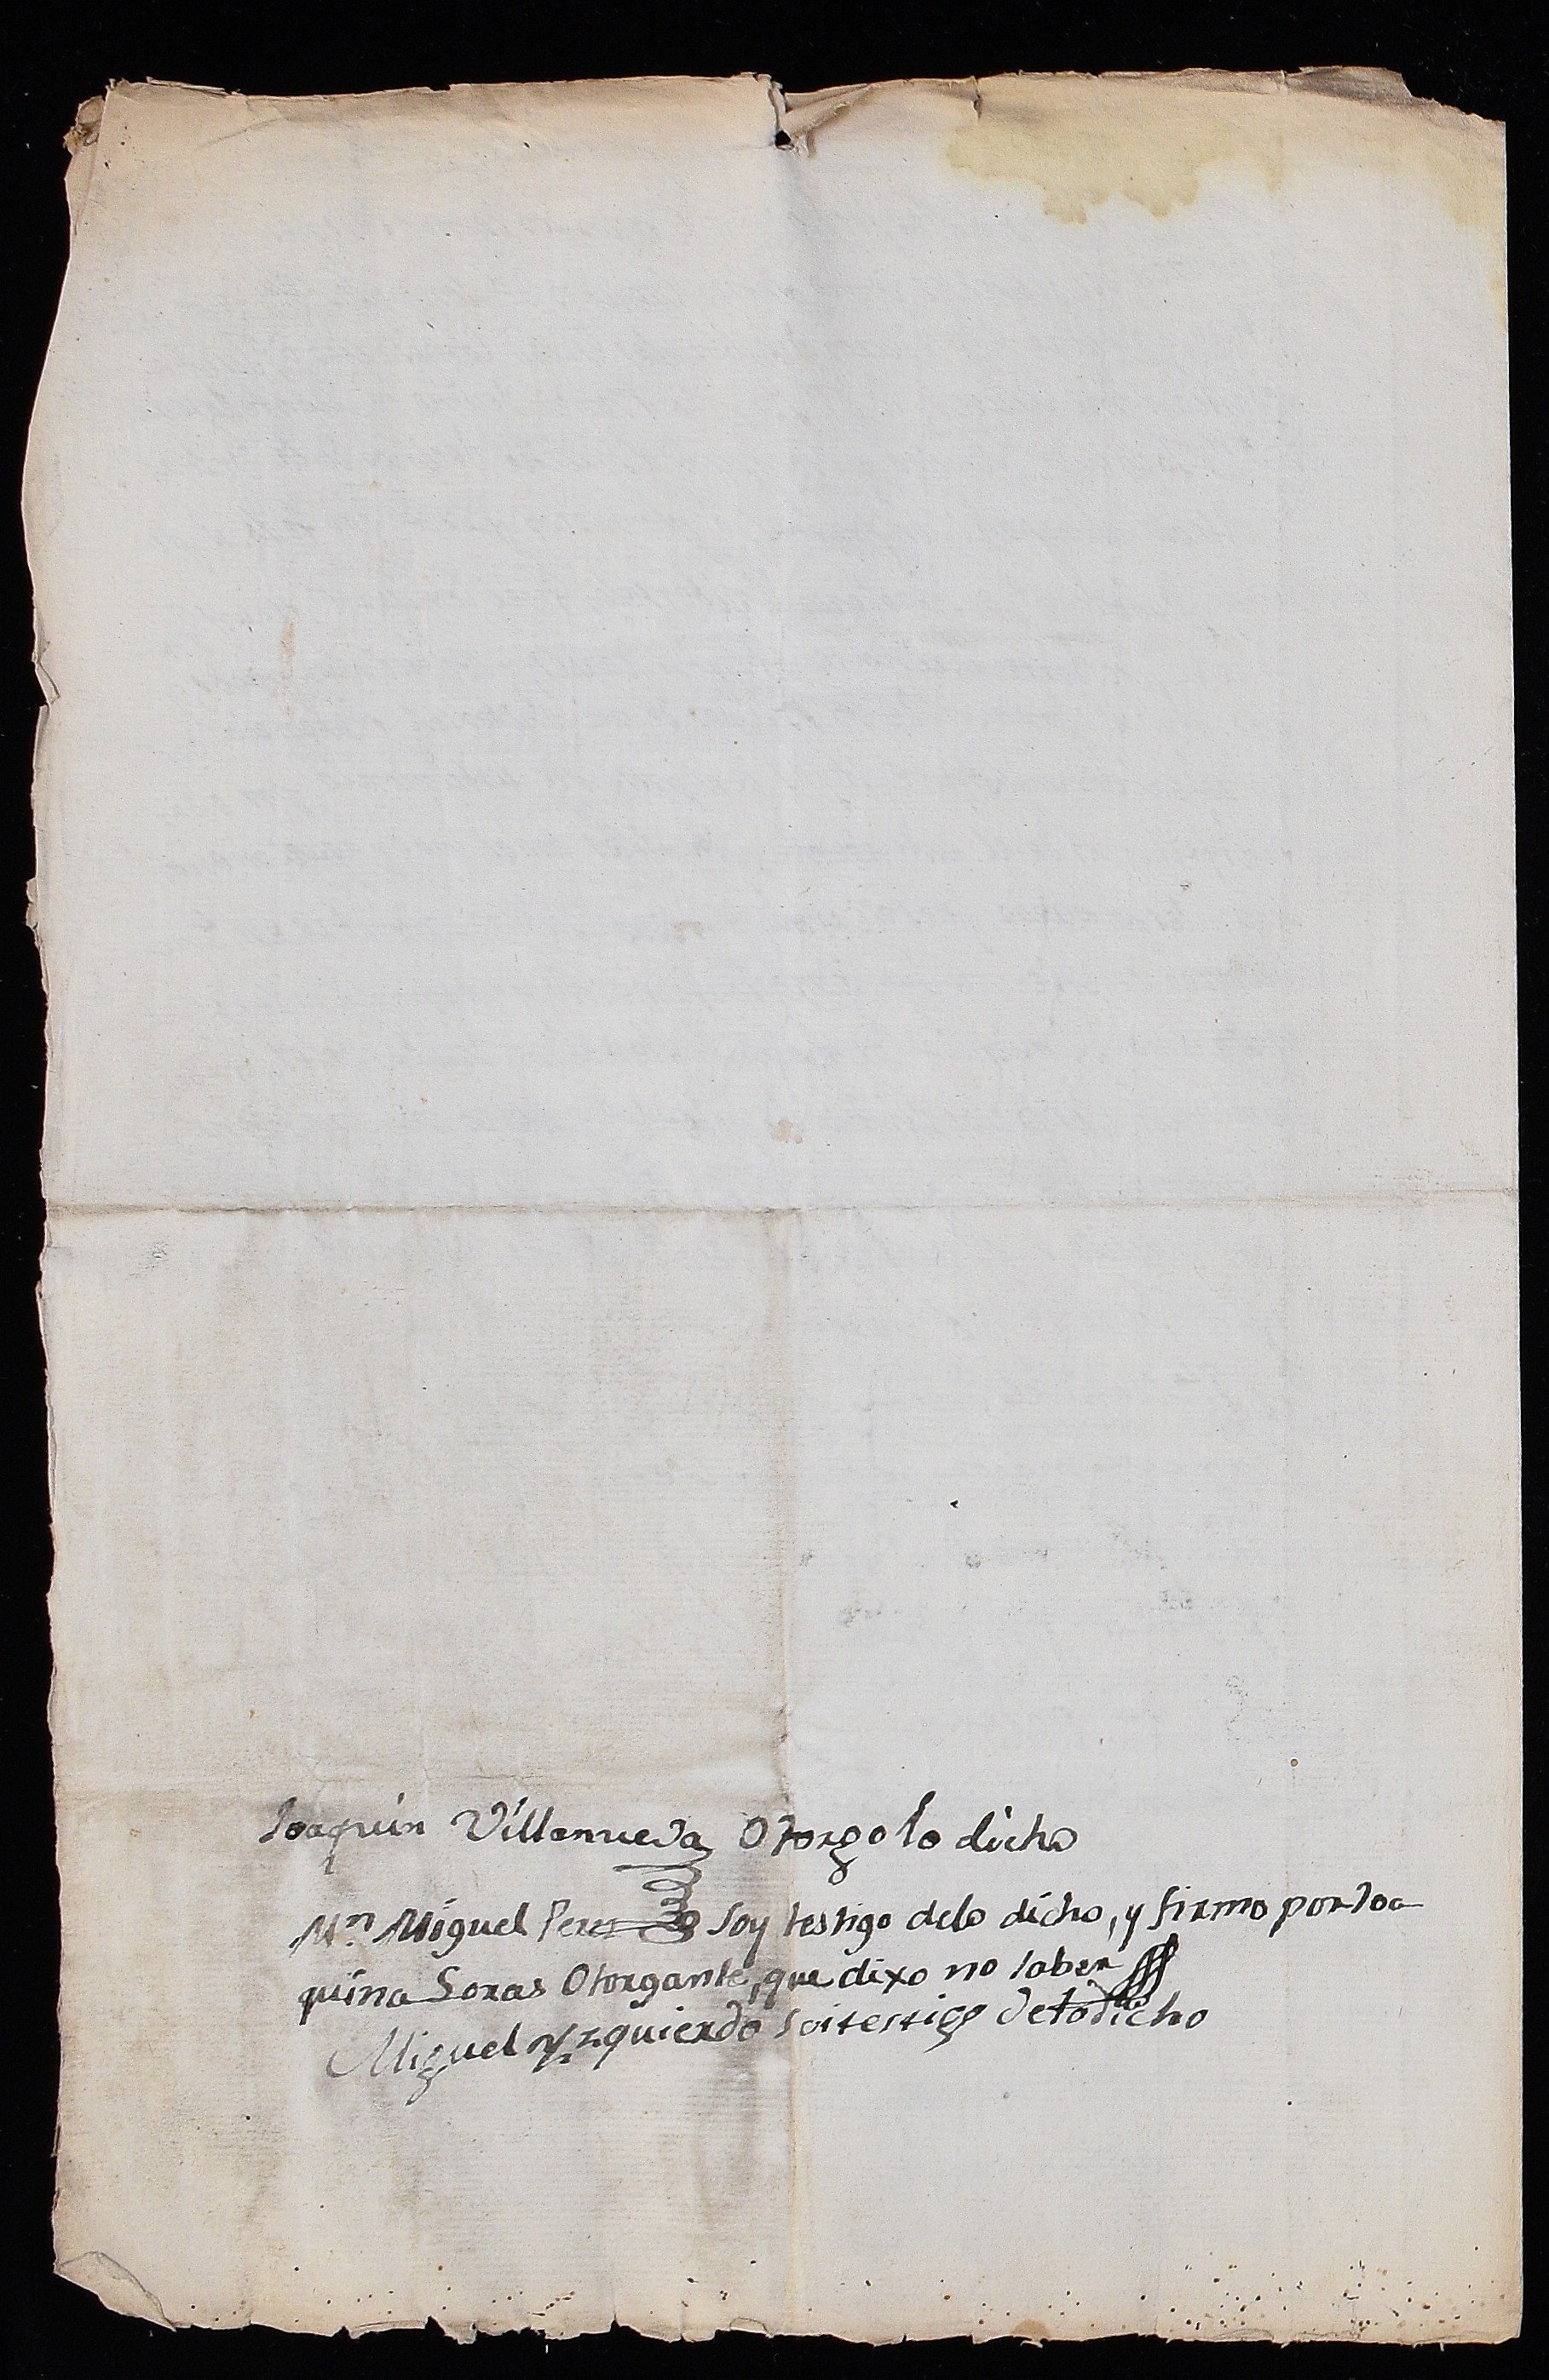 Joaquin Villanueva Otorgo lo dicho
Mn Miguel Perez Soy testigo delo dicho, y firmo por Joa
quina Soras Otorgante, que dixo no saber
Miguel Yzquierdo Soi testigo de lo dicho